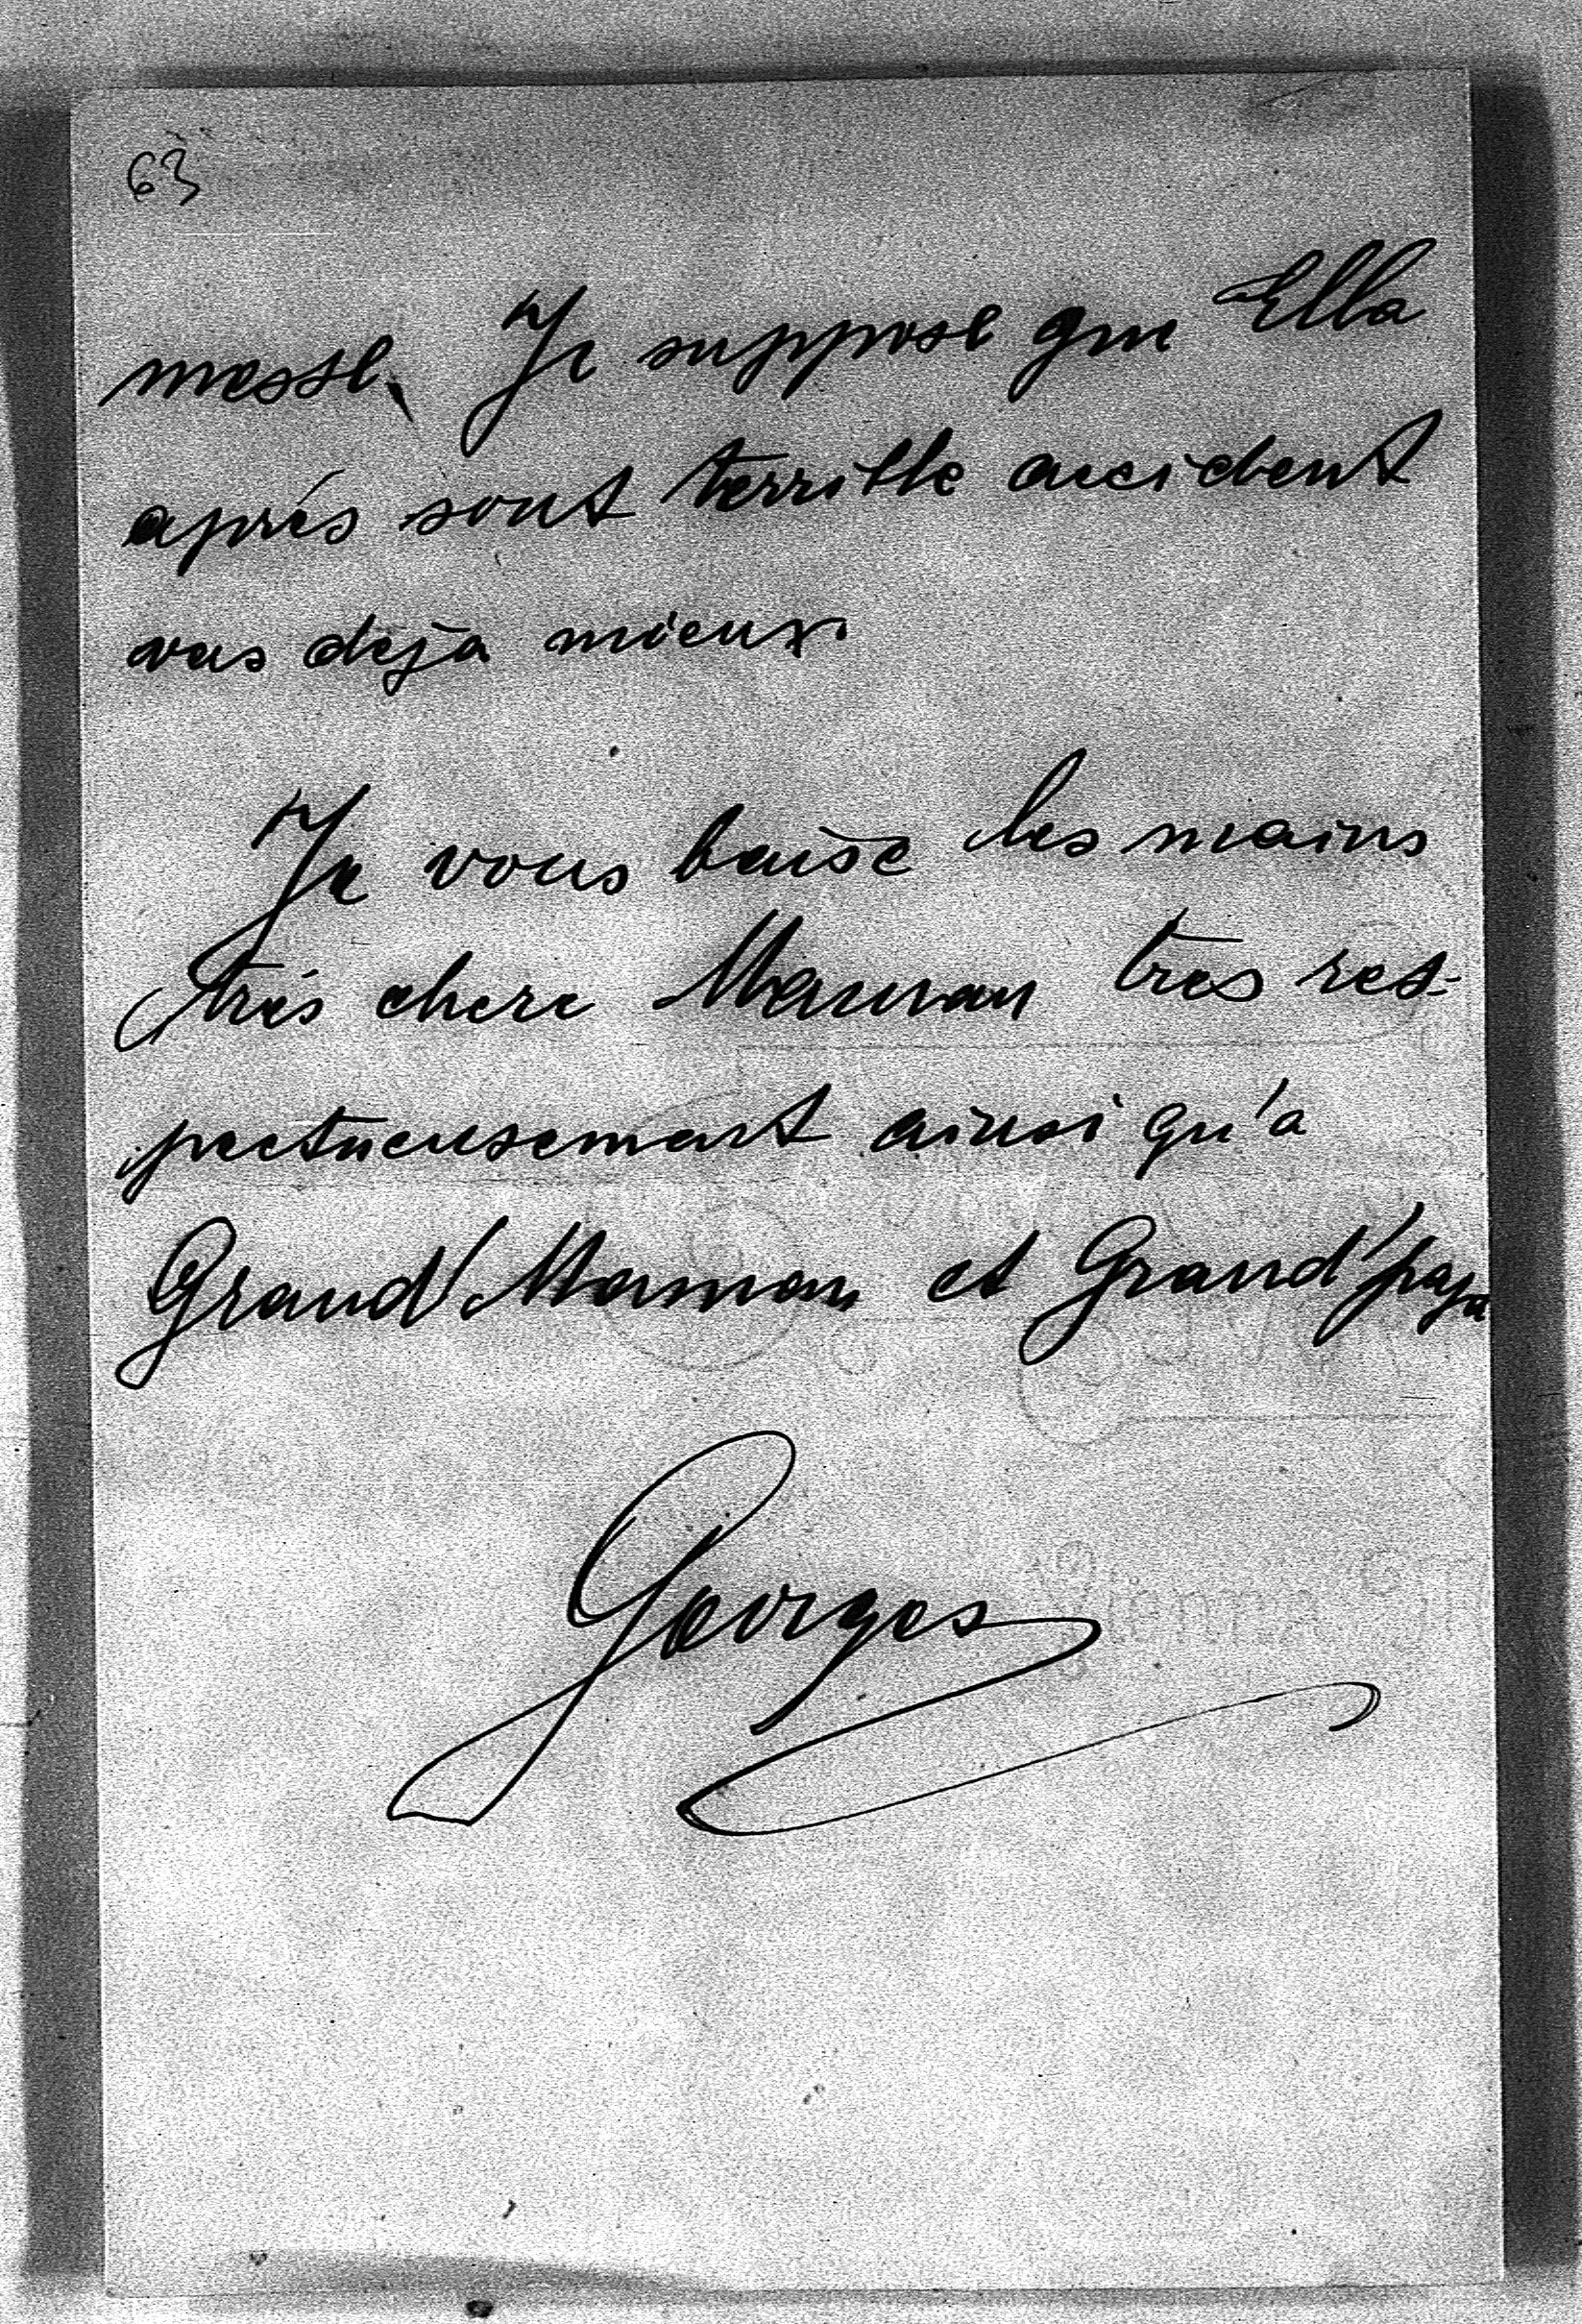 63
messe. Je suppose que Ella
aprés sont terrible accident
vas deja mieux.
Je vous baise les mains
trés chere Maman très res-
pectueusement ainsi qu'a
Grand'Maman et Grand'papa
Georges